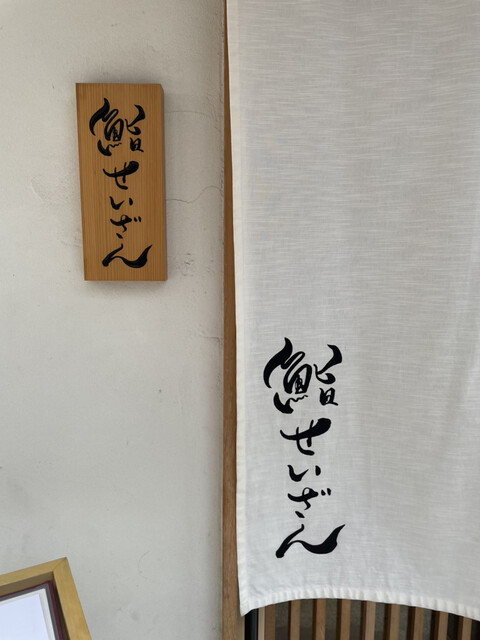 鮨せいざん
鮨せいざん